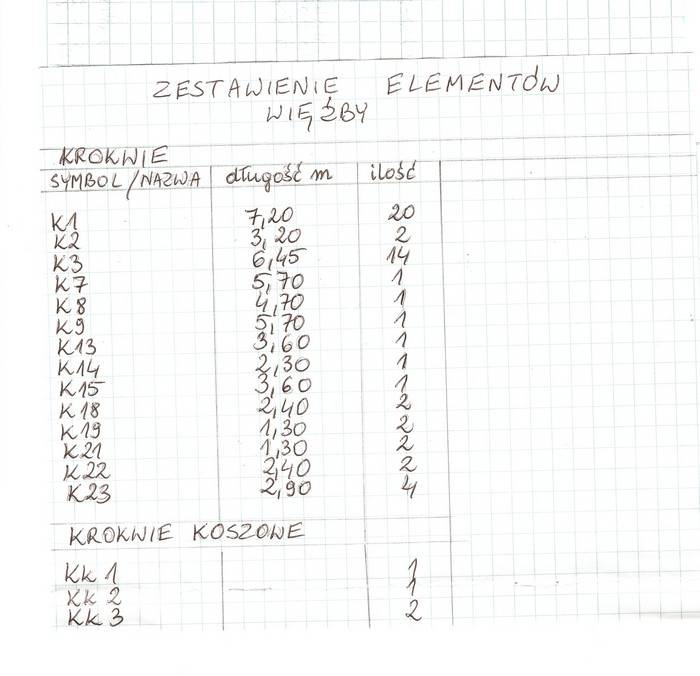 ZESTAWIENIE ELEMENTÓW
WIĘŹBY
KROKWIE
SYMBOL/NAZWA długość m ilość
K1 7,20 20
K2 3,20 2
K3 6,45 14
K7 5,70 1
K8 4,70 1
K9 5,70 1
K13 3,60 1
K14 2,30 1
K15 3,60 1
K18 2,40 2
K19 1,30 2
K21 1,30 2
K22 2,40 2
K23 2,90 4
KROKWIE KOSZOWE
Kk 1 1
Kk 2 1
Kk 3 2